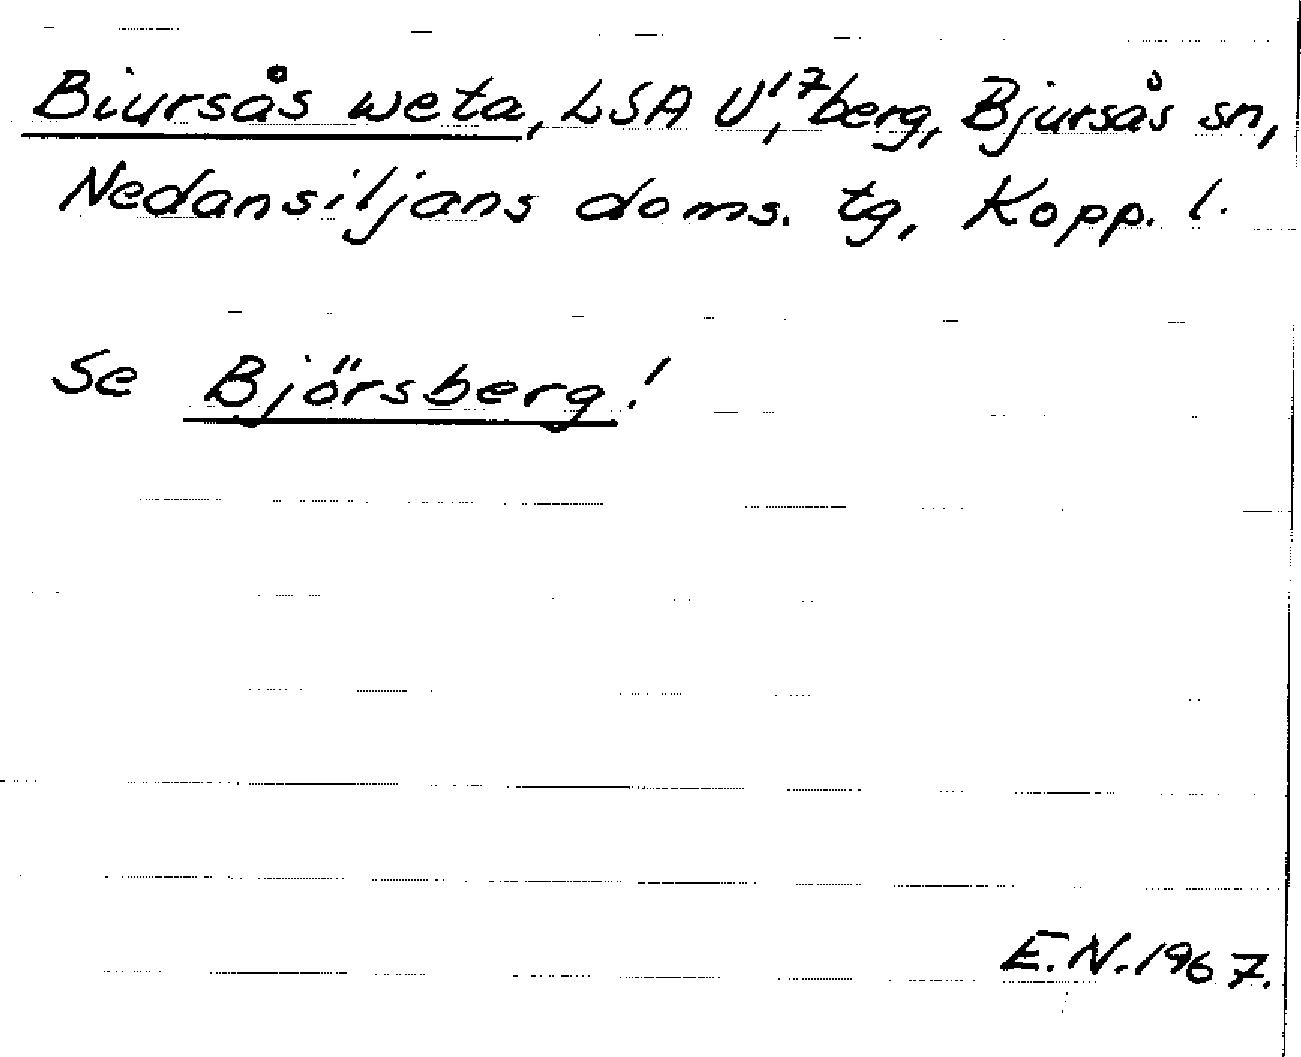 Biursås weta, LSA U¹⁷, berg, Bjursås sn,
Nedansiljans doms. tg, Kopp. l.
Se Björsberg!
E.N. 1967.